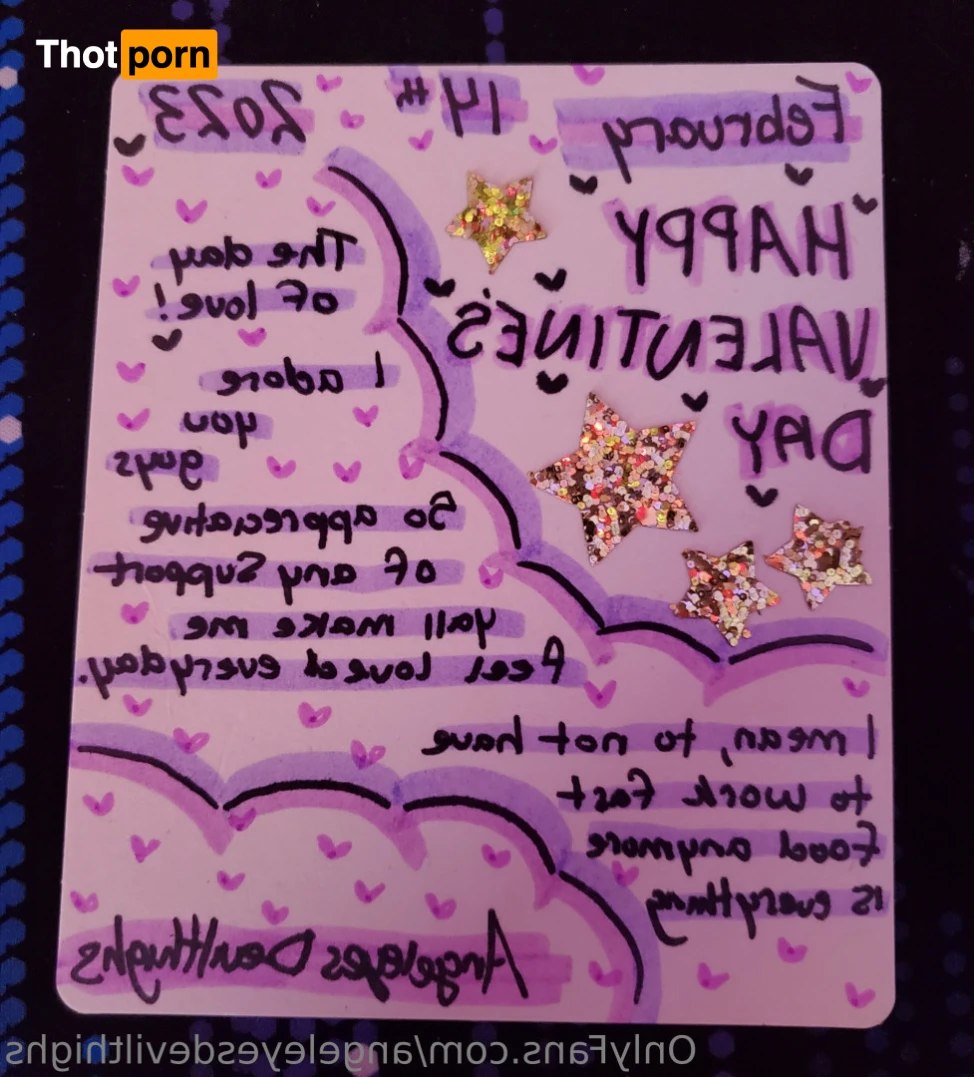 Thot porn
February 14th 2023
HAPPY
VALENTINE'S
DAY
The day
of love!
I adore
you
guys
So appreciative
of any support
yall make me
feel loved everyday.
I mean, to not have
to work fast
food anymore
is everything
Angeleyes Devilthighs
OnlyFans.com/angeleyesdevilthighs